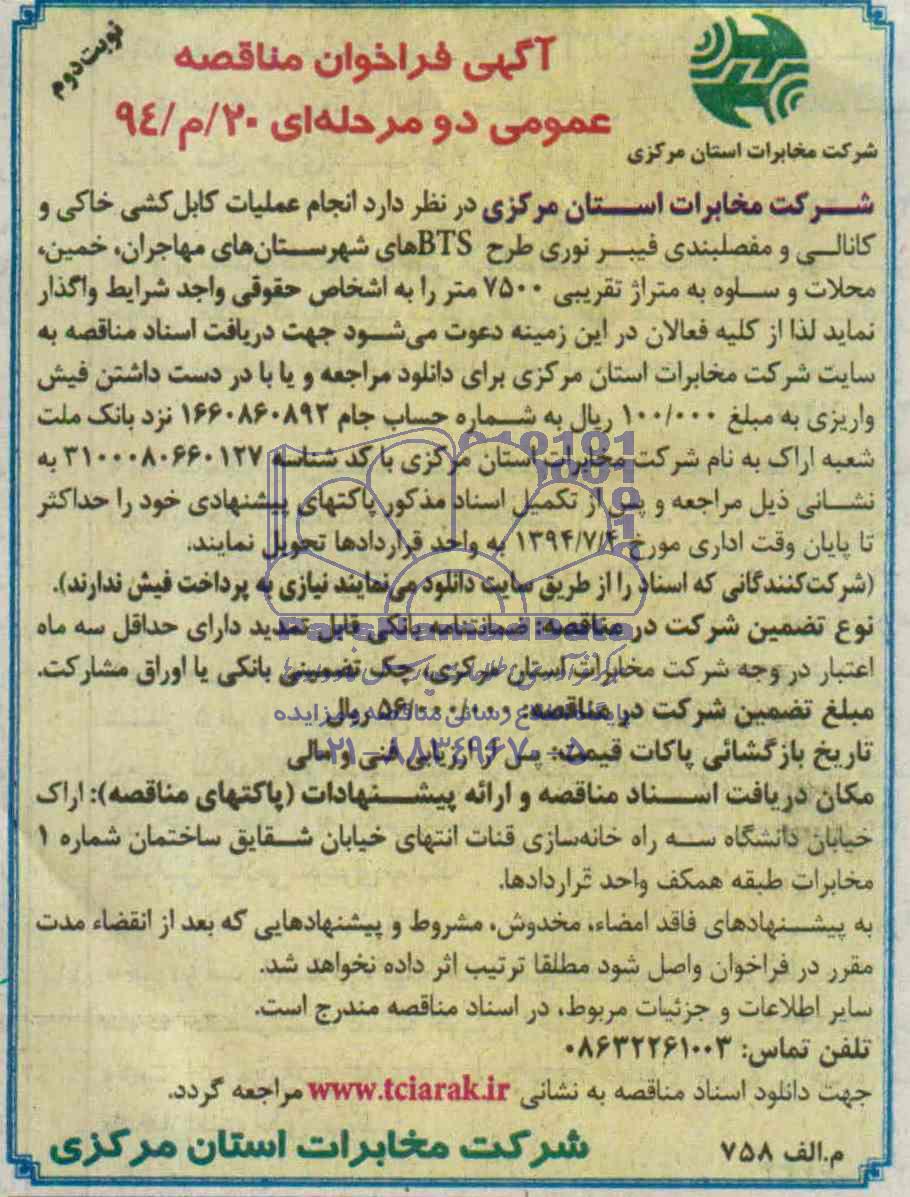 نوبت دوم
آگهی فراخوان مناقصه
عمومی دو مرحله‌ای ۲۰/م/۹٤
شرکت مخابرات استان مرکزی
شرکت مخابرات استان مرکزی در نظر دارد انجام عملیات کابل‌کشی خاکی و
کانالی و مفصلبندی فیبر نوری طرح BTSهای شهرستان‌های مهاجران، خمین،
محلات و ساوه به متراژ تقریبی ۷۵۰۰ متر را به اشخاص حقوقی واجد شرایط واگذار
نماید لذا از کلیه فعالان در این زمینه دعوت می‌شود جهت دریافت اسناد مناقصه به
سایت شرکت مخابرات استان مرکزی برای دانلود مراجعه و یا با در دست داشتن فیش
واریزی به مبلغ ۱۰۰/۰۰۰ ریال به شماره حساب جام ۱۶۶۰۸۶۰۸۹۲ نزد بانک ملت
شعبه اراک به نام شرکت مخابرات استان مرکزی با کد شناسه ۳۱۰۰۰۸۰۶۶۰۱۲۷ به
نشانی ذیل مراجعه و پس از تکمیل اسناد مذکور پاکتهای پیشنهادی خود را حداکثر
تا پایان وقت اداری مورخ ۱۳۹۴/۷/۴ به واحد قراردادها تحویل نمایند.
(شرکت‌کنندگانی که اسناد را از طریق سایت دانلود می‌نمایند نیازی به پرداخت فیش ندارند).
نوع تضمین شرکت در مناقصه: ضمانتنامه بانکی قابل تمدید دارای حداقل سه ماه
اعتبار در وجه شرکت مخابرات استان مرکزی، چک تضمینی بانکی یا اوراق مشارکت.
مبلغ تضمین شرکت در مناقصه: ۵۶/۰۰۰/۰۰۰ ریال
پایگاه اطلاع رسانی مناقصه و مزایده
تاریخ بازگشائی پاکات قیمت: پس از ارزیابی فنی و مالی
۰۲۱-۸۸۳۴۹۶۷۰-۵
مکان دریافت اسناد مناقصه و ارائه پیشنهادات (پاکتهای مناقصه): اراک
خیابان دانشگاه سه راه خانه‌سازی قنات انتهای خیابان شقایق ساختمان شماره ۱
مخابرات طبقه همکف واحد قراردادها.
به پیشنهادهای فاقد امضاء، مخدوش، مشروط و پیشنهادهایی که بعد از انقضاء مدت
مقرر در فراخوان واصل شود مطلقا ترتیب اثر داده نخواهد شد.
سایر اطلاعات و جزئیات مربوط، در اسناد مناقصه مندرج است.
تلفن تماس: ۰۸۶۳۲۲۶۱۰۰۳
جهت دانلود اسناد مناقصه به نشانی www.tciarak.ir مراجعه گردد.
م.الف ۷۵۸
شرکت مخابرات استان مرکزی